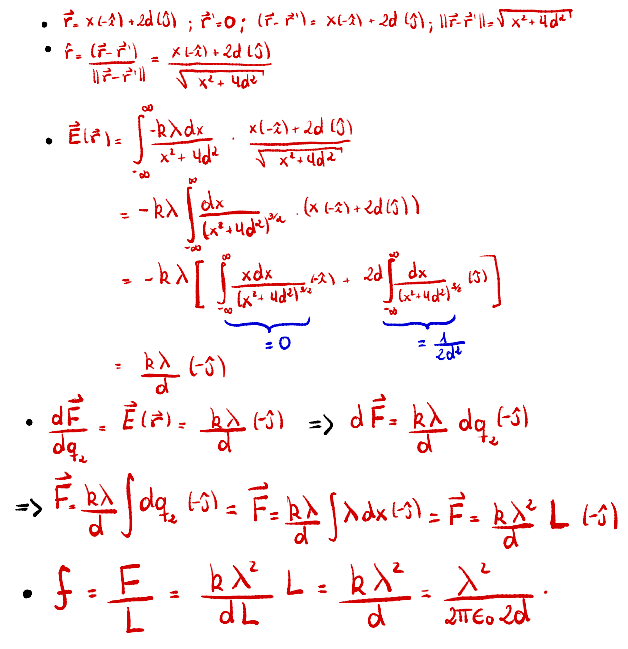 • r⃗ = x(-î) + 2d(ĵ) ; r⃗' = 0 ; (r⃗ - r⃗') = x(-î) + 2d(ĵ) ; ||r⃗ - r⃗'|| = √(x² + 4d²)
• r̂ = (r⃗ - r⃗') / ||r⃗ - r⃗'|| = (x(-î) + 2d(ĵ)) / √(x² + 4d²)
• E⃗(r⃗) = ∫_{-∞}^{∞} (-kλdx) / (x² + 4d²) · (x(-î) + 2d(ĵ)) / √(x² + 4d²)
= -kλ ∫_{-∞}^{∞} dx / (x² + 4d²)^{3/2} · (x(-î) + 2d(ĵ))
= -kλ [ ∫_{-∞}^{∞} xdx / (x² + 4d²)^{3/2} (-î) + 2d ∫_{-∞}^{∞} dx / (x² + 4d²)^{3/2} (ĵ) ]
= 0 = 1/2d²
= kλ/d (-ĵ)
• dF⃗/dq₂ = E⃗(r⃗) = kλ/d (-ĵ) => dF⃗ = kλ/d dq₂ (-ĵ)
=> F⃗ = kλ/d ∫ dq₂ (-ĵ) = F⃗ = kλ/d ∫ λdx (-ĵ) = F⃗ = kλ²/d L (-ĵ)
• f = F/L = kλ²/dL L = kλ²/d = λ²/2πϵ₀2d .